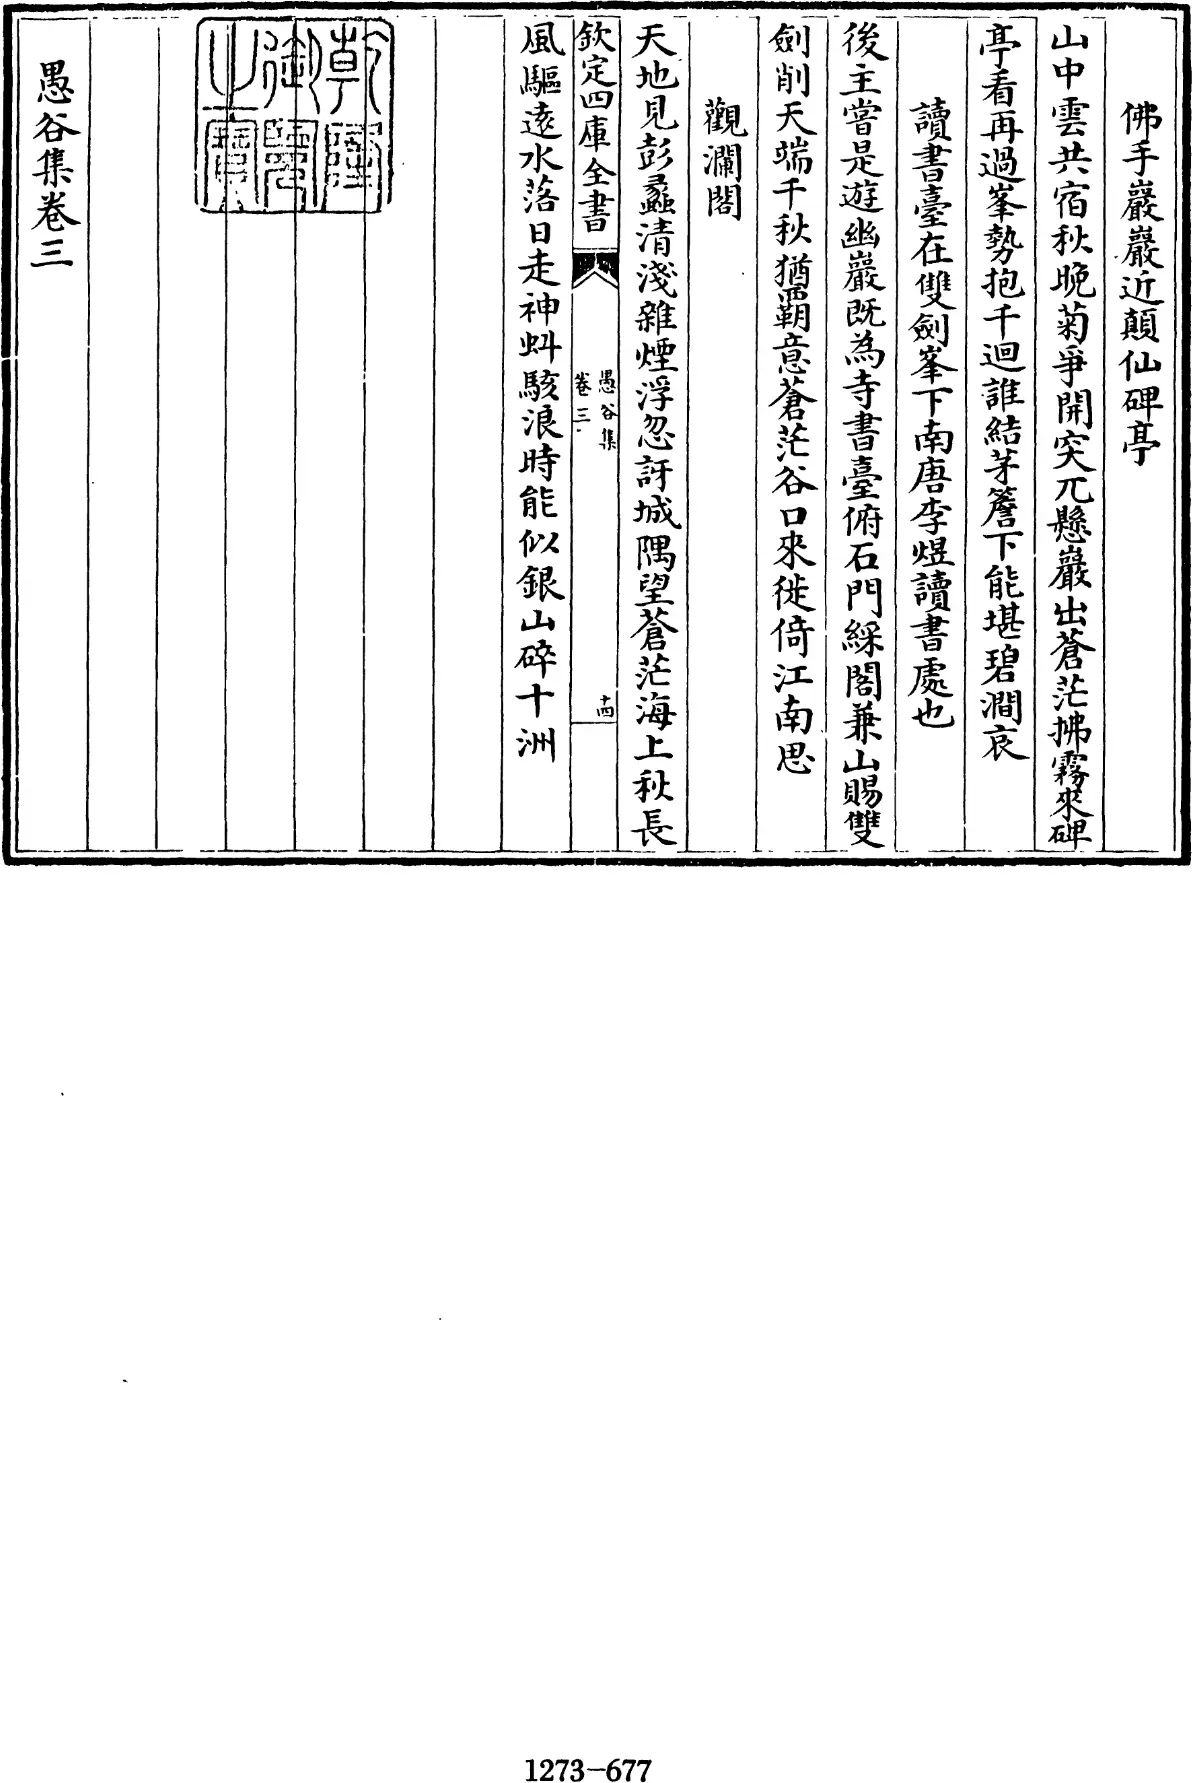 佛手巖巖近顛仙碑亭
山中雲共宿秋晚菊爭開突兀懸巖出蒼茫拂霧來碑
亭看再過峯勢抱千迴誰結茅簷下能堪碧澗哀
讀書臺在雙劍峯下南唐李煜讀書處也
後主當是遊幽巖既為寺書臺俯石門綵閣兼山賜雙
劍削天端千秋猶覇意蒼茫谷口來徙倚江南思
觀瀾閣
天地見彭蠡清淺雜煙浮忽訝城隅望蒼茫海上秋長
欽定四庫全書
愚谷集
卷三
十四
風驅遠水落日走神虯駭浪時能似銀山碎十洲
乾隆御覽之寶
愚谷集卷三
1273-677